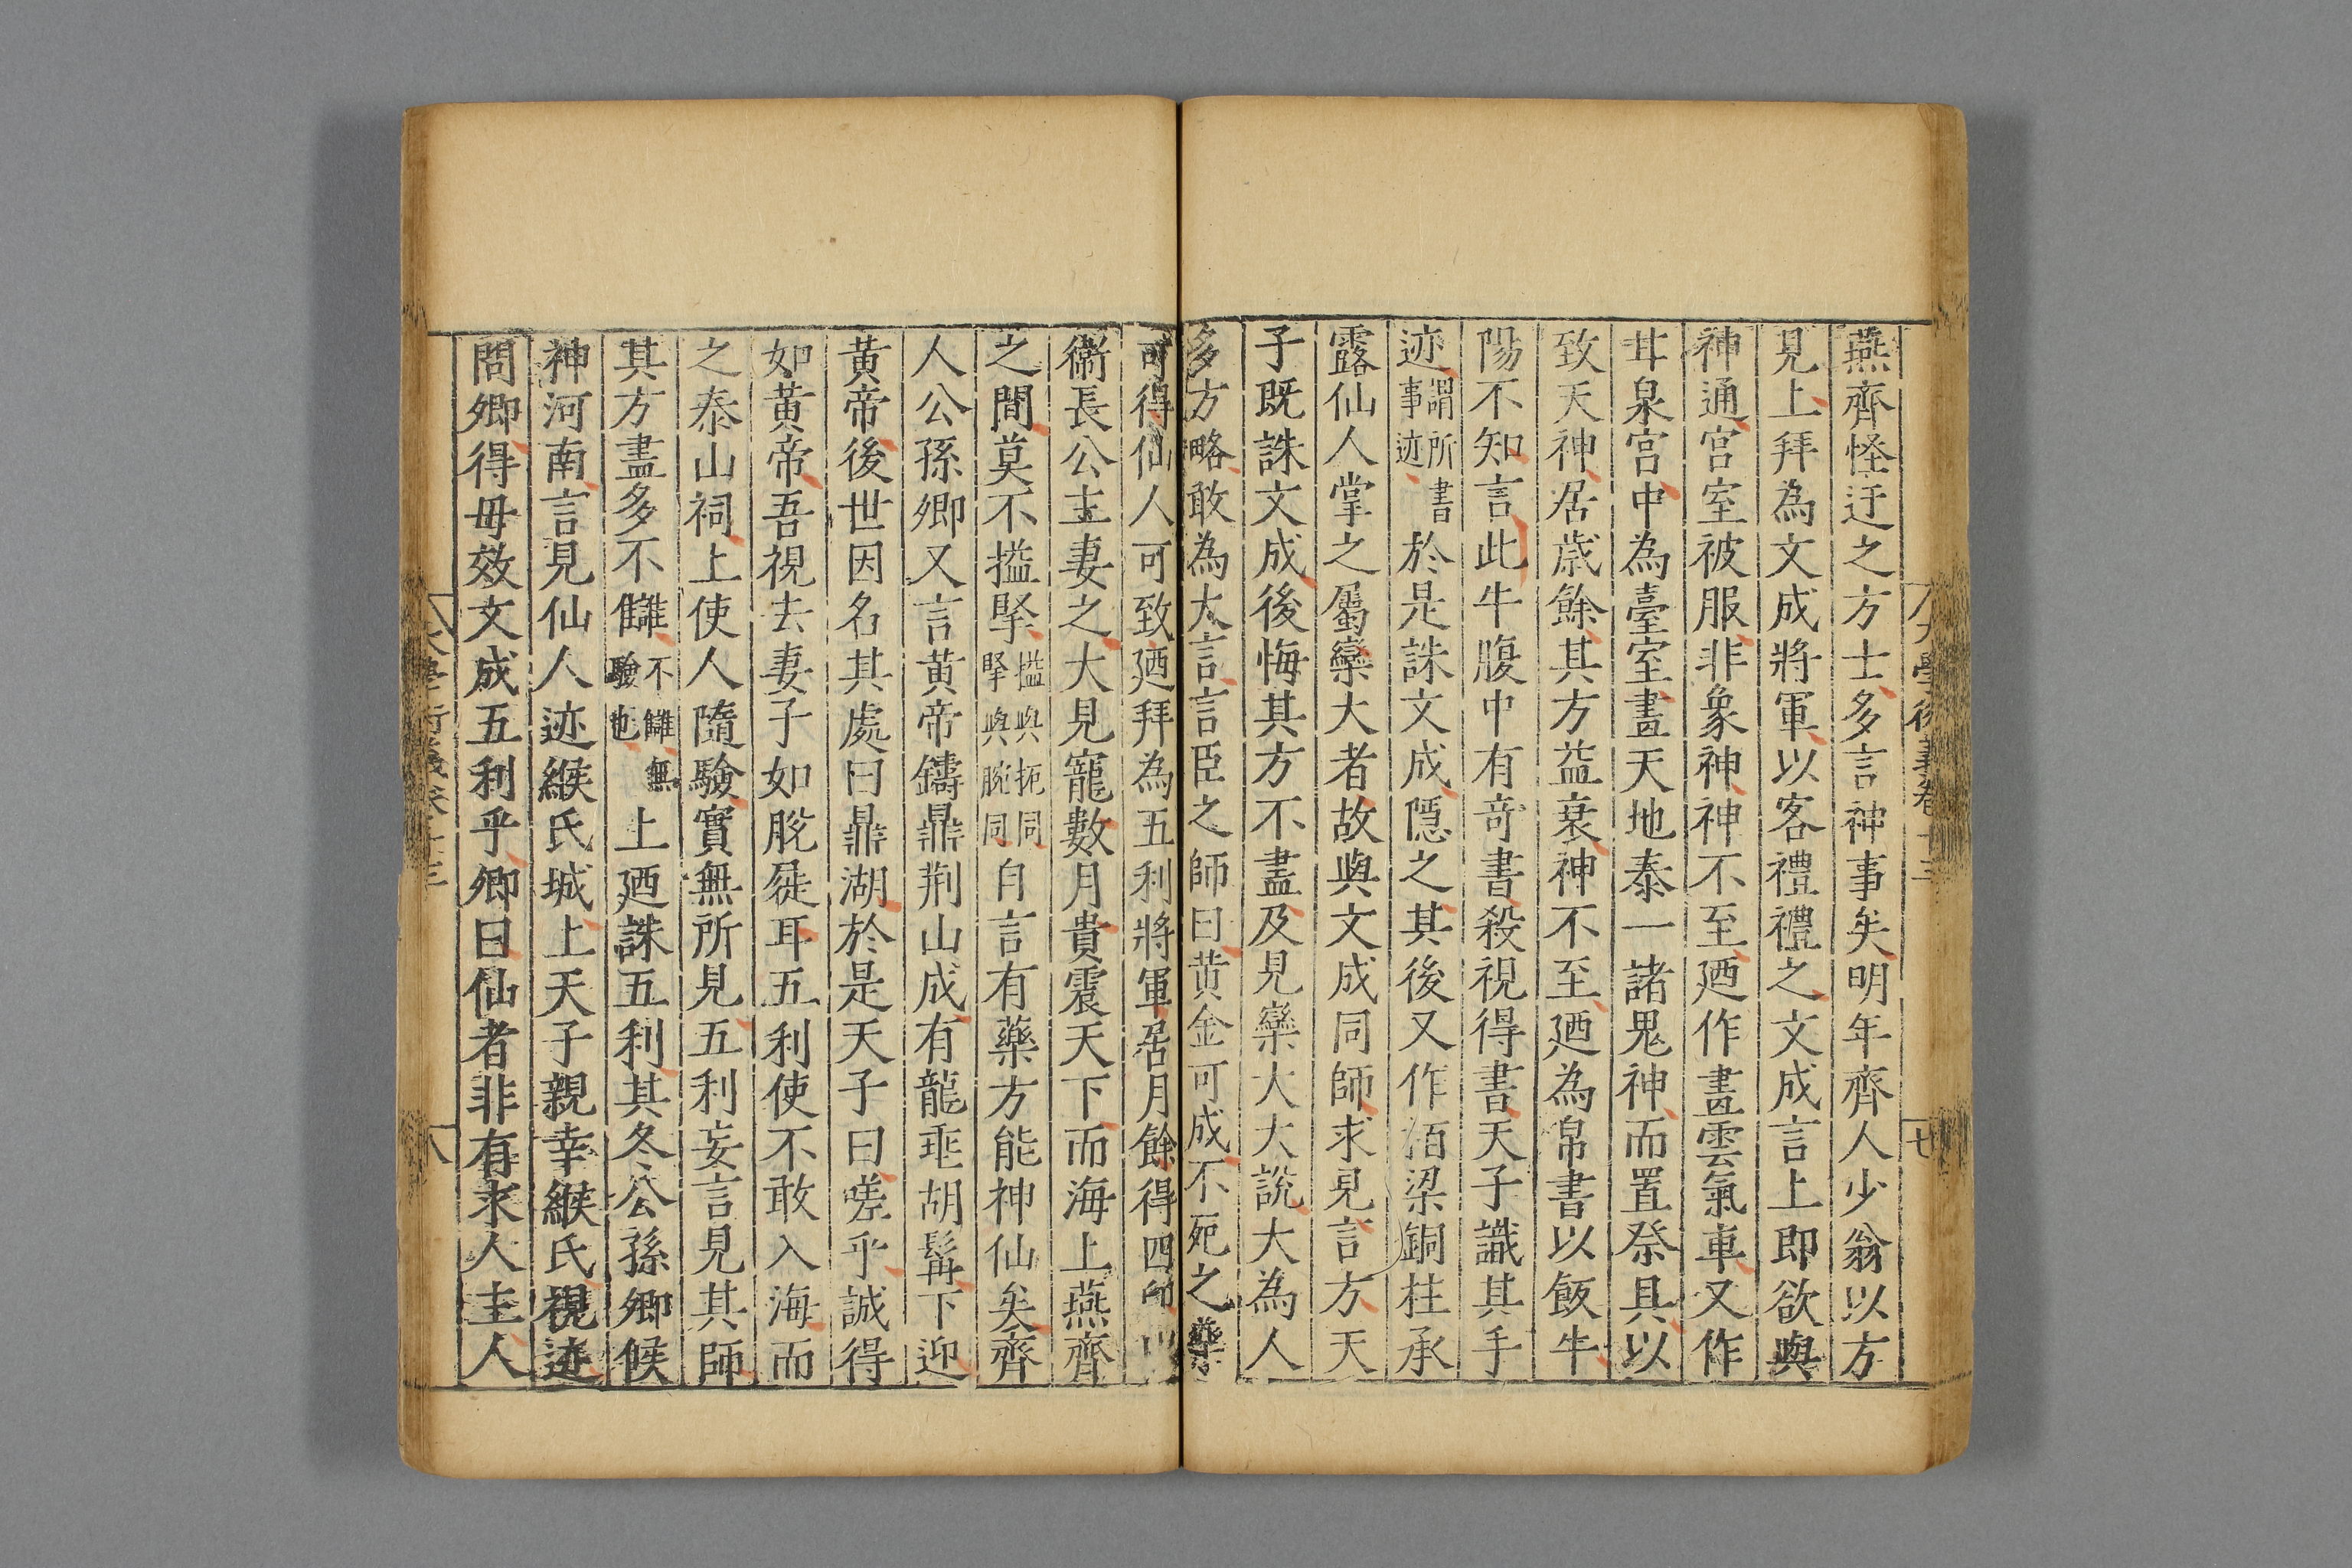 燕齊怪迂之方士多言神事矣明年齊人少翁以方
見上拜為文成將軍以客禮禮之文成言上即欲與
神通宮室被服非象神神不至廼作畫雲氣車又作
甘泉宮中為臺室畫天地泰一諸鬼神而置祭具以
致天神居歲餘其方益衰神不至廼為帛書以飯牛
陽不知言此牛腹中有奇書殺視得書天子識其手
迹謂所書事迹於是誅文成隱之其後又作栢梁銅柱承
露仙人掌之屬欒大者故與文成同師求見言方天
子既誅文成後悔其方不盡及見欒大大說大為人
多方略敢為大言言臣之師曰黃金可成不死之藥
可得仙人可致廼拜為五利將軍居月餘得四印以
衞長公主妻之大見寵數月貴震天下而海上燕齊
之間莫不搤掔搤與扼同掔與腕同自言有藥方能神仙矣齊
人公孫卿又言黃帝鑄鼎荆山成有龍垂胡髯下迎
黃帝後世因名其處曰鼎湖於是天子曰嗟乎誠得
如黃帝吾視去妻子如脫屣耳五利使不敢入海而
之泰山祠上使人隨驗實無所見五利妄言見其師
其方盡多不讎不讎無驗也上廼誅五利其冬公孫卿候
神河南言見仙人迹緱氏城上天子親幸緱氏視迹
問卿得毋效文成五利乎卿曰仙者非有求人主人
大學衍義卷十三
七
八